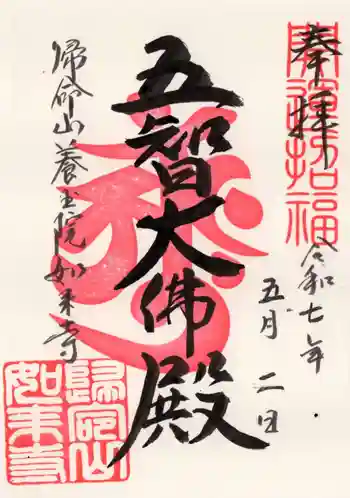 奉拝
開運招福
令和七年
五月二日
五智大佛殿
帰命山養玉院如来寺
帰命山
如来寺